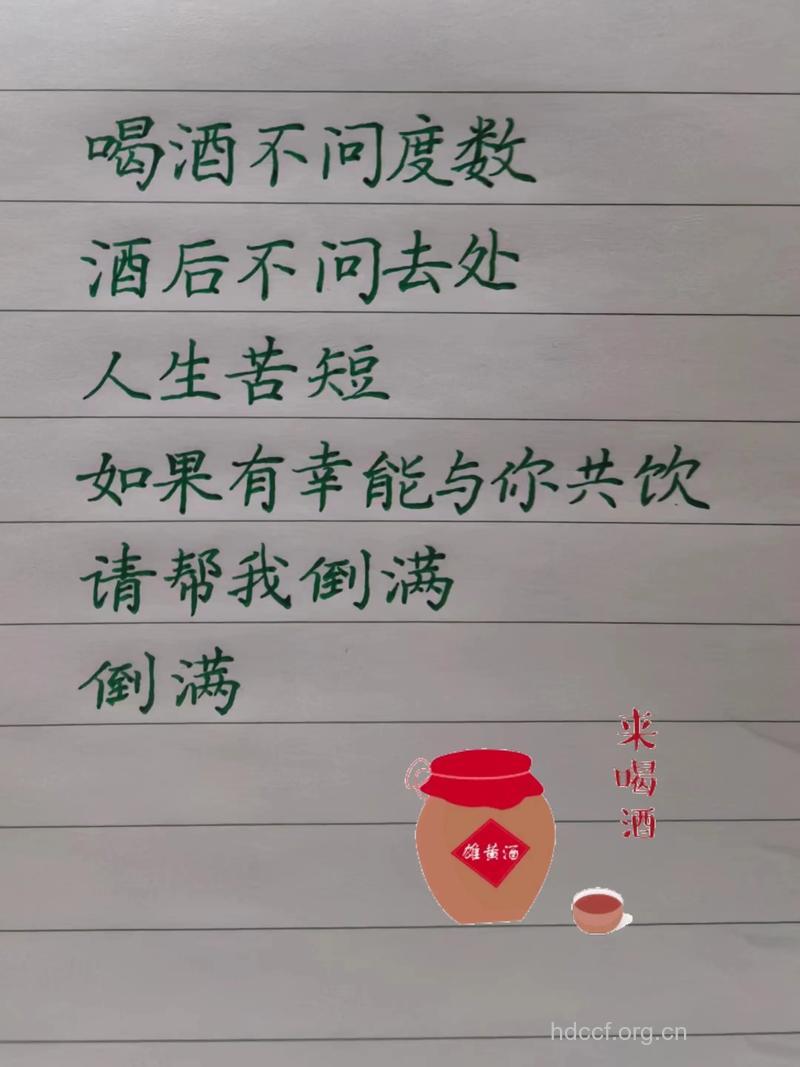 喝酒不问度数
酒后不问去处
人生苦短
如果有幸能与你共饮
请帮我倒满
倒满
来喝酒
雄黄酒
hdccf.org.cn